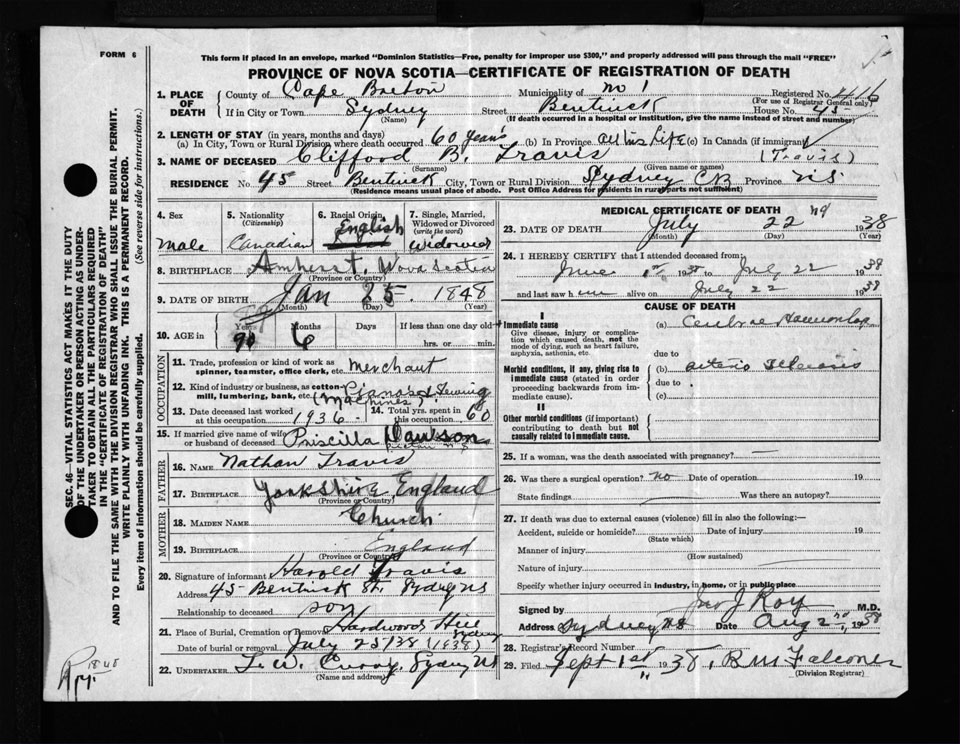 FORM 6
This form if placed in an envelope, marked "Dominion Statistics—Free, penalty for improper use $300," and properly addressed will pass through the mail "FREE"
PROVINCE OF NOVA SCOTIA—CERTIFICATE OF REGISTRATION OF DEATH
1. PLACE OF DEATH County of Cape Breton Municipality of No 1 Registered No. 416
(For use of Registrar General only)
If in City or Town Sydney Street Bentinck House No. 45
(Name) (If death occurred in a hospital or institution, give the name instead of street and number)
2. LENGTH OF STAY (in years, months and days)
(a) In City, Town or Rural Division where death occurred 60 years (b) In Province all his Life (c) In Canada (if immigrant)
3. NAME OF DECEASED Clifford B. Travis (Travis)
(Surname) (Given name or names)
RESIDENCE No. 45 Street Bentinck City, Town or Rural Division Sydney CB Province NS.
(Residence means usual place of abode. Post Office Address for residents in rural parts not sufficient)
4. Sex Male
5. Nationality (Citizenship) Canadian
6. Racial Origin English
7. Single, Married, Widowed or Divorced (write the word) Widowed
8. BIRTHPLACE Amherst, Nova Scotia
(Province or Country)
9. DATE OF BIRTH Jan 25. 1848
(Month) (Day) (Year)
10. AGE in Years 90 Months 6 Days If less than one day old
hrs. or min.
OCCUPATION
11. Trade, profession or kind of work as spinner, teamster, office clerk, etc. Merchant
12. Kind of industry or business, as cotton-mill, lumbering, bank, etc. Pianos & Sewing (Machines)
13. Date deceased last worked at this occupation 1936
14. Total yrs. spent in this occupation 60
15. If married give name of wife or husband of deceased Priscilla
FATHER
16. NAME Nathan Travis
17. BIRTHPLACE Yorkshire England
(Province or Country)
MOTHER
18. MAIDEN NAME Church
19. BIRTHPLACE England
(Province or Country)
20. Signature of informant Harold Travis
Address 45 Bentinck St. Sydney NS
Relationship to deceased son
21. Place of Burial, Cremation or Removal Hardwood Hill Sydney
Date of burial or removal July 25/38 (1938)
22. UNDERTAKER Sydney NS
(Name and address)
MEDICAL CERTIFICATE OF DEATH
23. DATE OF DEATH July 22nd 1938
(Month) (Day) (Year)
24. I HEREBY CERTIFY that I attended deceased from:
June 1st 1938 to July 22 1938
and last saw him alive on July 22 1938
CAUSE OF DEATH
I
Immediate cause
Give disease, injury or complication which caused death, not the mode of dying, such as heart failure, asphyxia, asthenia, etc.
(a)
due to
Morbid conditions, if any, giving rise to immediate cause (stated in order proceeding backwards from immediate cause).
(b)
due to
(c)
II
Other morbid conditions (if important) contributing to death but not causally related to immediate cause.
25. If a woman, was the death associated with pregnancy? —
26. Was there a surgical operation? No Date of operation 19
State findings Was there an autopsy?
27. If death was due to external causes (violence) fill in also the following:—
Accident, suicide or homicide? Date of injury 19
(State which)
Manner of injury
(How sustained)
Nature of injury
Specify whether injury occurred in industry, in home, or in public place
Signed by J Roy M.D.
Address Sydney NS Date Aug 2nd, 1938
28. Registrar's Record Number
29. Filed Sept 1st 1938, B M Falconer
(Division Registrar)
SEC. 46—VITAL STATISTICS ACT MAKES IT THE DUTY
OF THE UNDERTAKER OR PERSON ACTING AS UNDER-
TAKER TO OBTAIN ALL THE PARTICULARS REQUIRED
IN THE "CERTIFICATE OF REGISTRATION OF DEATH"
AND TO FILE THE SAME WITH THE DIVISION REGISTRAR WHO SHALL ISSUE THE BURIAL PERMIT.
WRITE PLAINLY WITH UNFADING INK. THIS IS A PERMANENT RECORD.
Every item of information should be carefully supplied. (See reverse side for instructions.)
1848